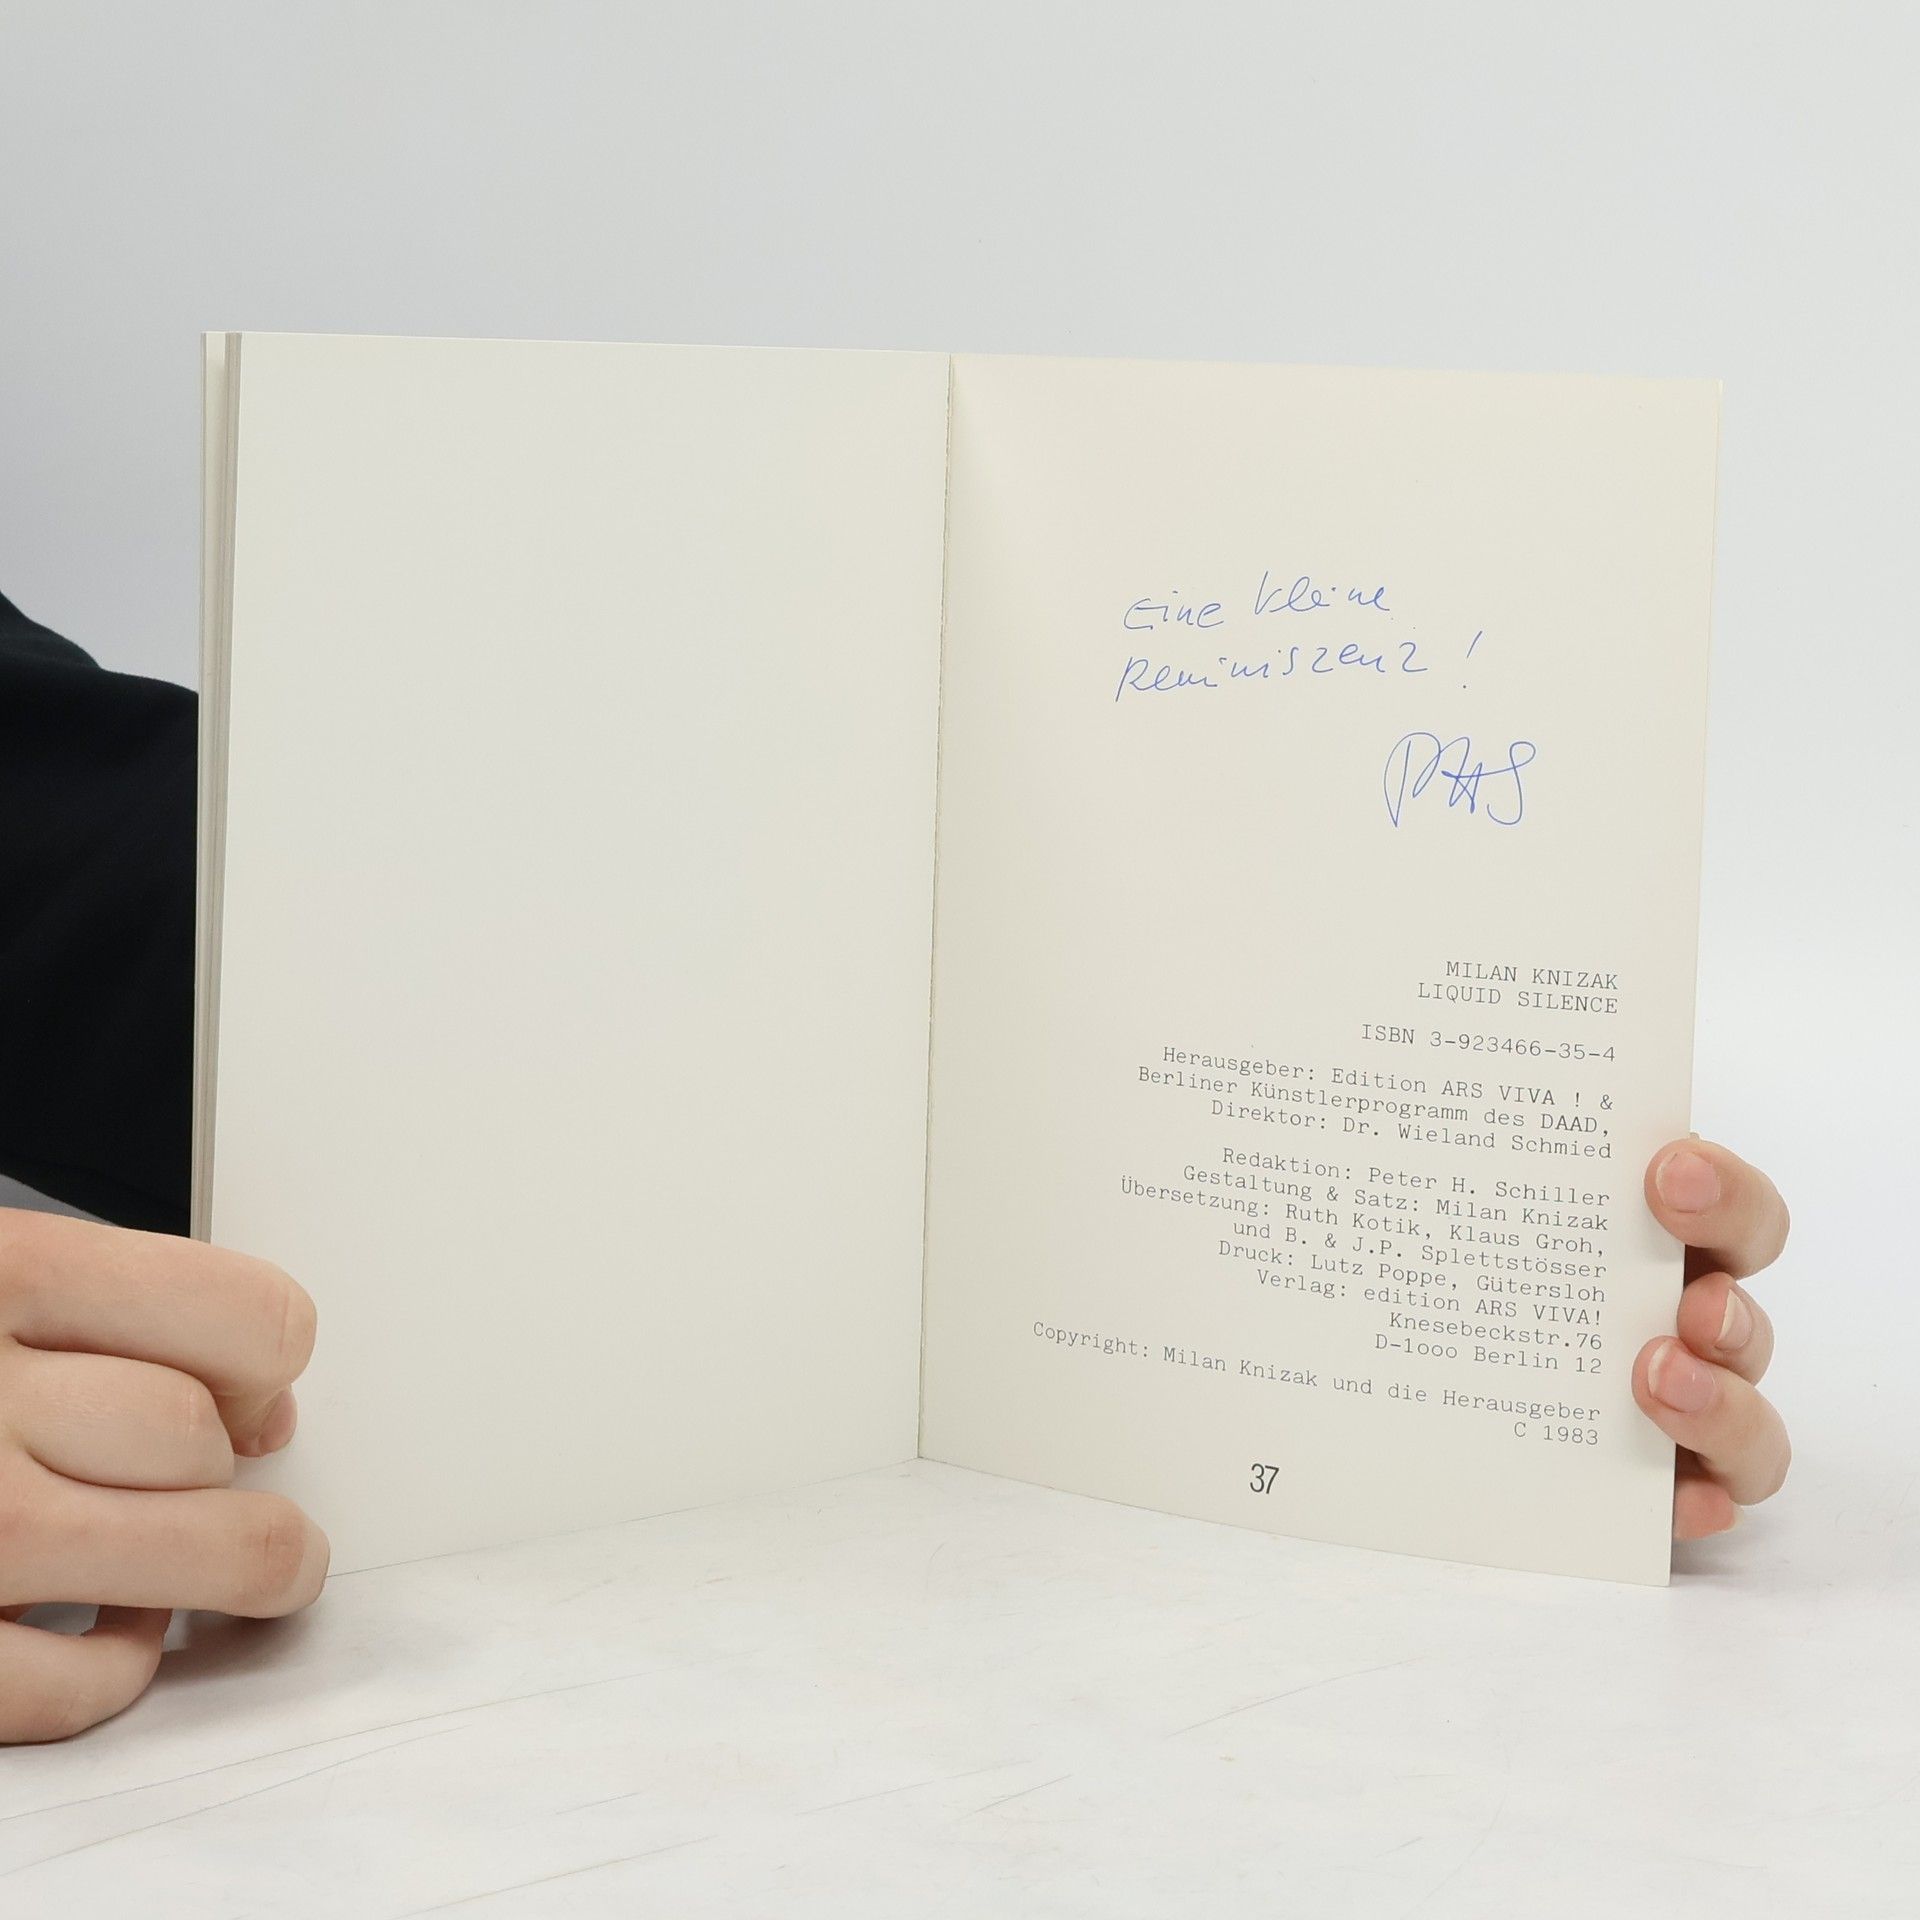 Eine kleine
Reminiszenz !
MILAN KNIZAK
LIQUID SILENCE
ISBN 3-923466-35-4
Herausgeber: Edition ARS VIVA ! &
Berliner Künstlerprogramm des DAAD,
Direktor: Dr. Wieland Schmied
Redaktion: Peter H. Schiller
Gestaltung & Satz: Milan Knizak
Übersetzung: Ruth Kotik, Klaus Groh,
und B. & J.P. Splettstösser
Druck: Lutz Poppe, Gütersloh
Verlag: edition ARS VIVA!
Knesebeckstr.76
D-1ooo Berlin 12
Copyright: Milan Knizak und die Herausgeber
C 1983
37